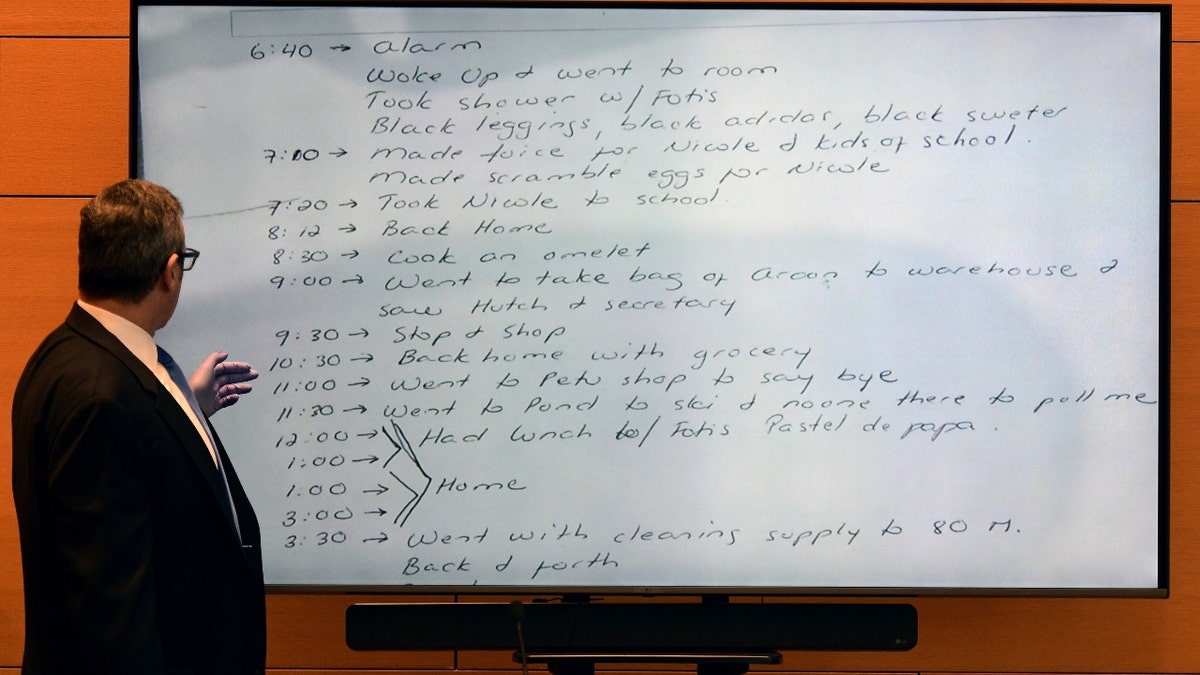 6:40 → alarm
Woke Up & went to room
Took shower w/ Fotis
Black leggings, black adidas, black sweter
7:10 → Made Juice for Nicole & kids of school.
Made scramble eggs for Nicole
7:20 → Took Nicole to school.
8:12 → Back Home
8:30 → Cook an omelet
9:00 → Went to take bag of to warehouse &
saw Hutch & secretary
9:30 → Stop & Shop
10:30 → Back home with grocery
11:00 → Went to Petu shop to say bye
11:30 → Went to Pond to ski & noone there to pull me
12:00 → Had lunch w/ Fotis Pastel de papa.
1:00 →
1:00 → Home
3:00 →
3:30 → Went with cleaning supply to 80 M.
Back & forth
LG